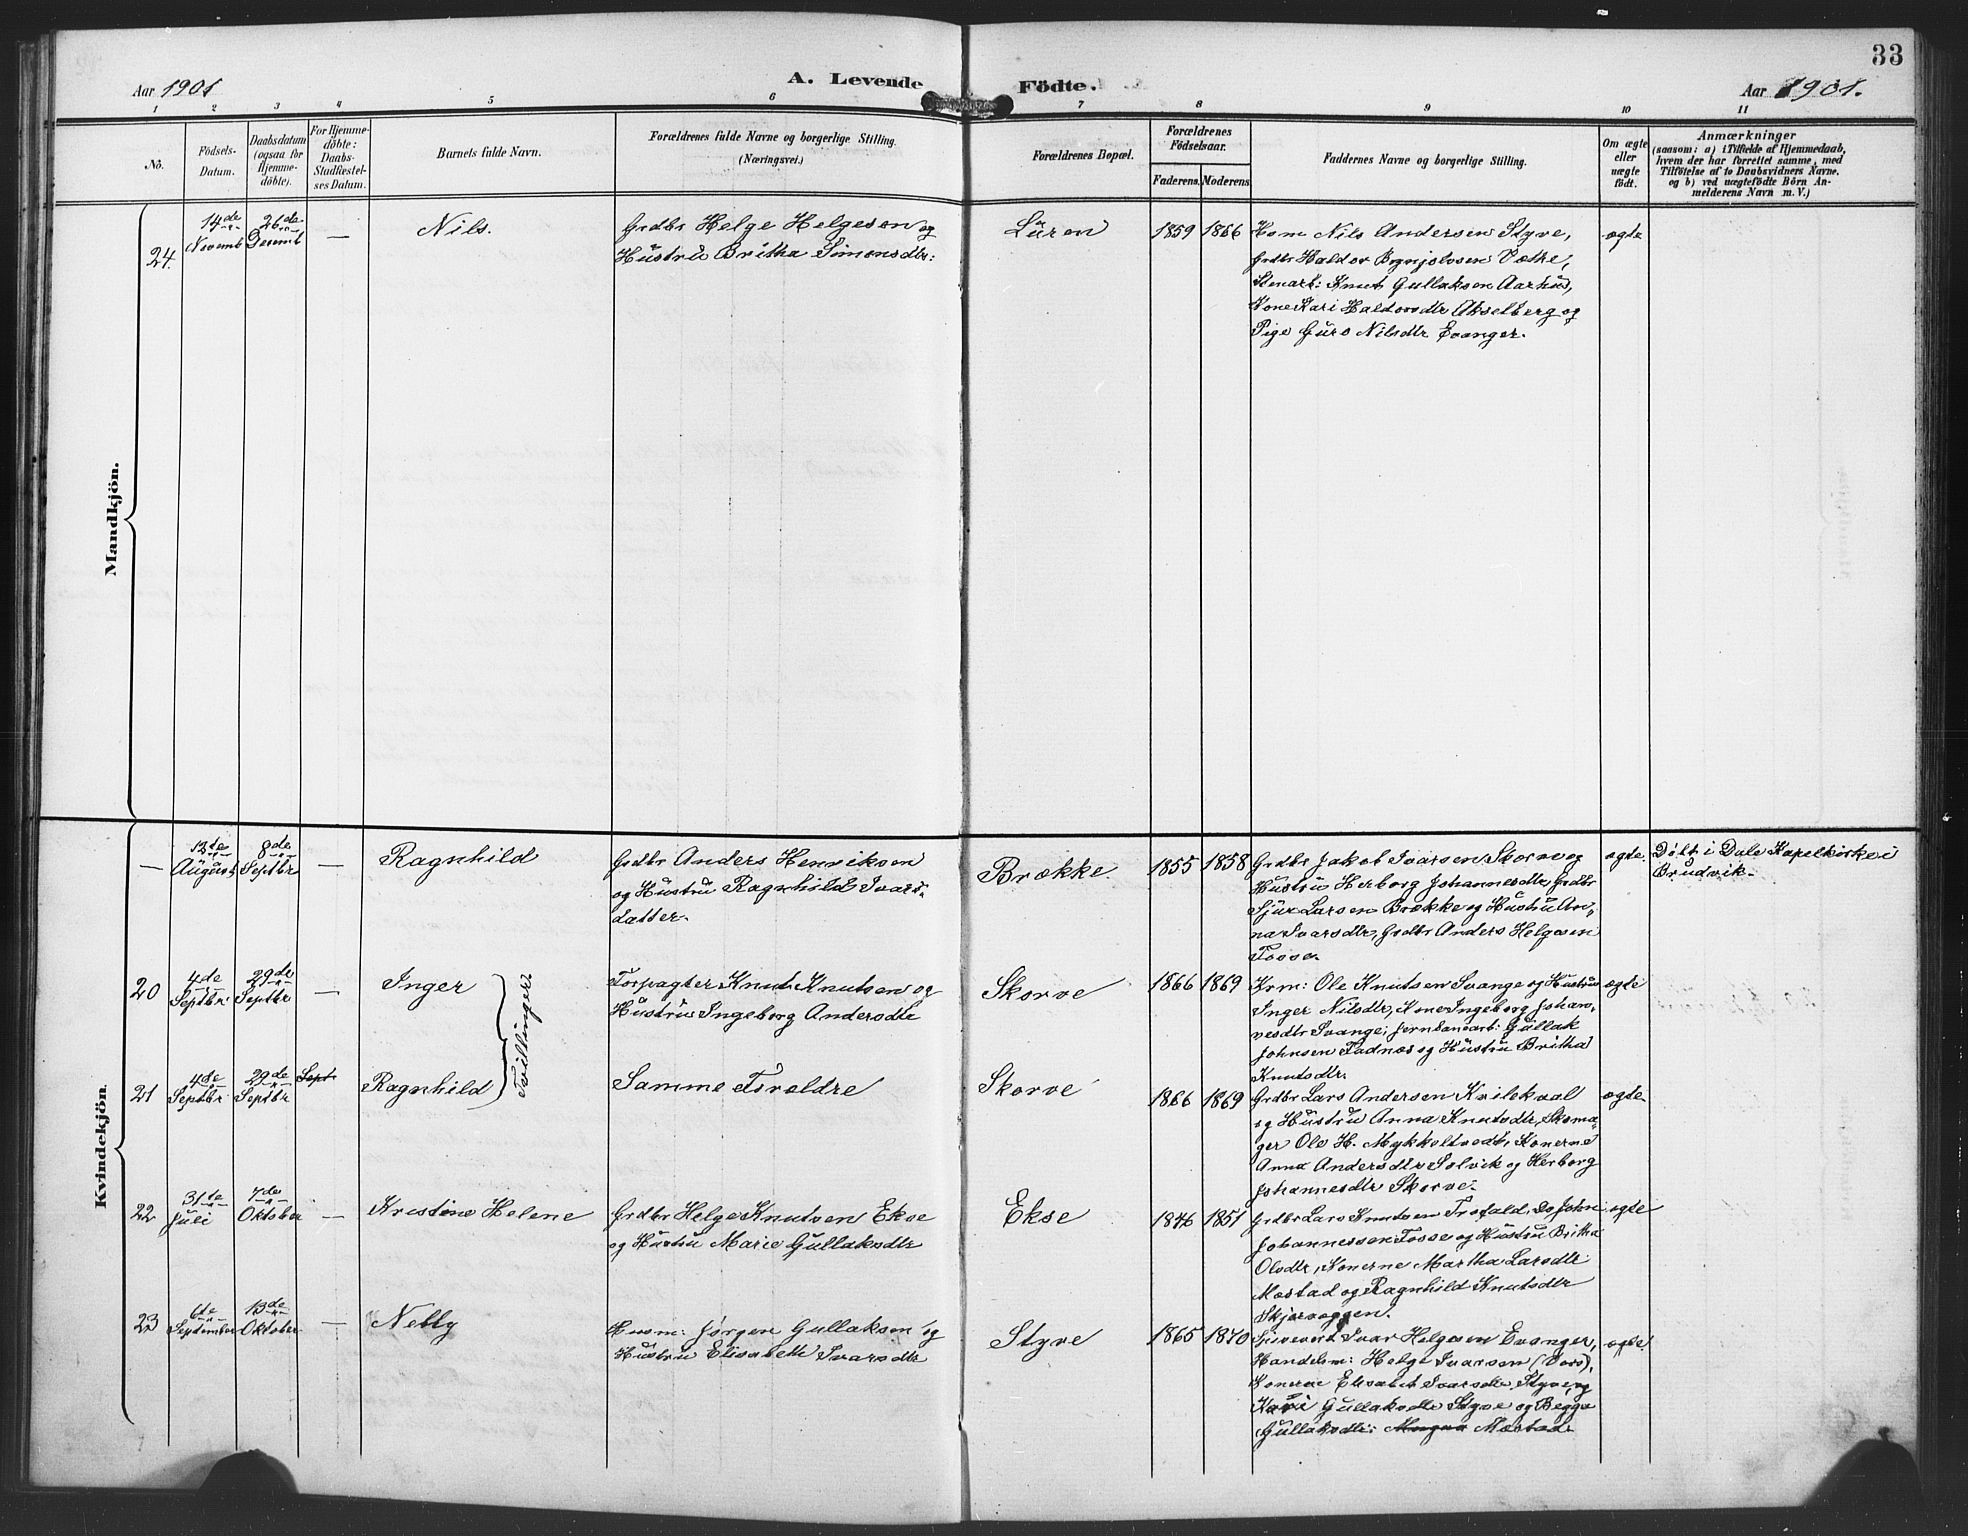 33
Aar 1901
A. Levende
Födte.
Aar 1901.
1 2 3 4 5 6 7 8 9 10 11
No.
Födsels-
Datum.
Daabsdatum
(ogsaa for
Hjemme-
döbte).
For Hjemme-
döbte:
Daabs-
Stadfæstel-
ses Datum.
Barnets fulde Navn.
Forældrenes fulde Navne og borgerlige Stilling.
(Næringsvei.)
Forældrenes Bopæl.
Forældrenes
Födselsaar.
Faderens. Moderens
Faddernes Navne og borgerlige Stilling.
Om ægte
eller
uægte
födt.
Anmærkninger
(saasom: a) i Tilfælde af Hjemmedaab,
hvem der har forrettet samme, med
Tilföielse af to Daabsvidners Navne,
og b) ved uægtefödte Börn An-
melderens Navn m. V.)
Mandkjön.
24.
14de
Novemb
26de
Decemb
—
Nils.
Grdbr Helge Helgesen og
Hustru Britha Simonsdtr:
Lüren
1859 1866
Husm Nils Andersen Styve,
Grdbr Haldor Brynjolvsen Væthe,
Stenarb: Knut Gullaksen Aarhus,
Kone Kari Haldorsdtr Akselberg og
Pige Guro Nilsdtr Evanger.
ægte
Kvindekjön
—
13te
August
8de
Septbr
—
Ragnhild
Grdbr Anders Henriksen
og Hustru Ragnhild Ivars-
datter.
Brække
1855 1858
Grdbr Jakob Ivarsen Skorve og
Hustru Herborg Johannesdtr, Grdbr
Sjur Larsen Brække og Hustru An-
na Ivarsdtr, Grdbr Anders Helgesen
Fosse.
ægte.
Döbt i Dale Kapelkirke i
Brudvik.
20
4de
Septbr.
29de
Septbr
—
Inger
Tvillinger
Forpagter Knut Knutsen og
Hustru Ingeborg Andersdtr
Skorve
1866 1869
Krm: Ole Knutsen Svange og Hustru
Inger Nilsdtr, Kone Ingeborg Johan-
nesdtr Svange; Jernbanearb: Gullak
Johnsen Fadnæs og Hustru Britha
Knutsdtr.
ægte
21
4de
Septbr
29de
Septbr
Sept
Ragnhild
Samme Forældre
Skorve
1866 1869
Grdbr Lars Andersen Kvilekval
og Hustru Anna Knutsdtr, Skoma-
ger Ole H. Mykkeltvedt, Konerne
Anna Andersdtr Solvik og Herborg
Johannesdtr Skorve.
ægte
22
31te
Juli
7de
Oktober
—
Kristine Helene
Grdbr Helge Knutsen Ekse
og Hustru Marie Gullaksdtr
Ekse
1846 1851
Grdbr Lars Knutsen Trofald, Do John
Johannessen Fosse og Hustru Britha
Olsdtr, Konerne Martha Larsdtr
Mæstad og Ragnhild Knutsdtr
Skjerveggen.
ægte
23
6te
September
13de
Oktober
—
Nelly
Husm: Jørgen Gullaksen og
Hustru Elisabeth Ivarsdtr
Styve
1865 1870
Ivar Helgesen Evanger,
Handelsm: Helge Ivarsen (Voss),
Konerne Elisabet Ivarsdtr Styve, og
Kari Gullaksdtr Styve og Begga
Gullaksdtr: Mæstad.
ægte.